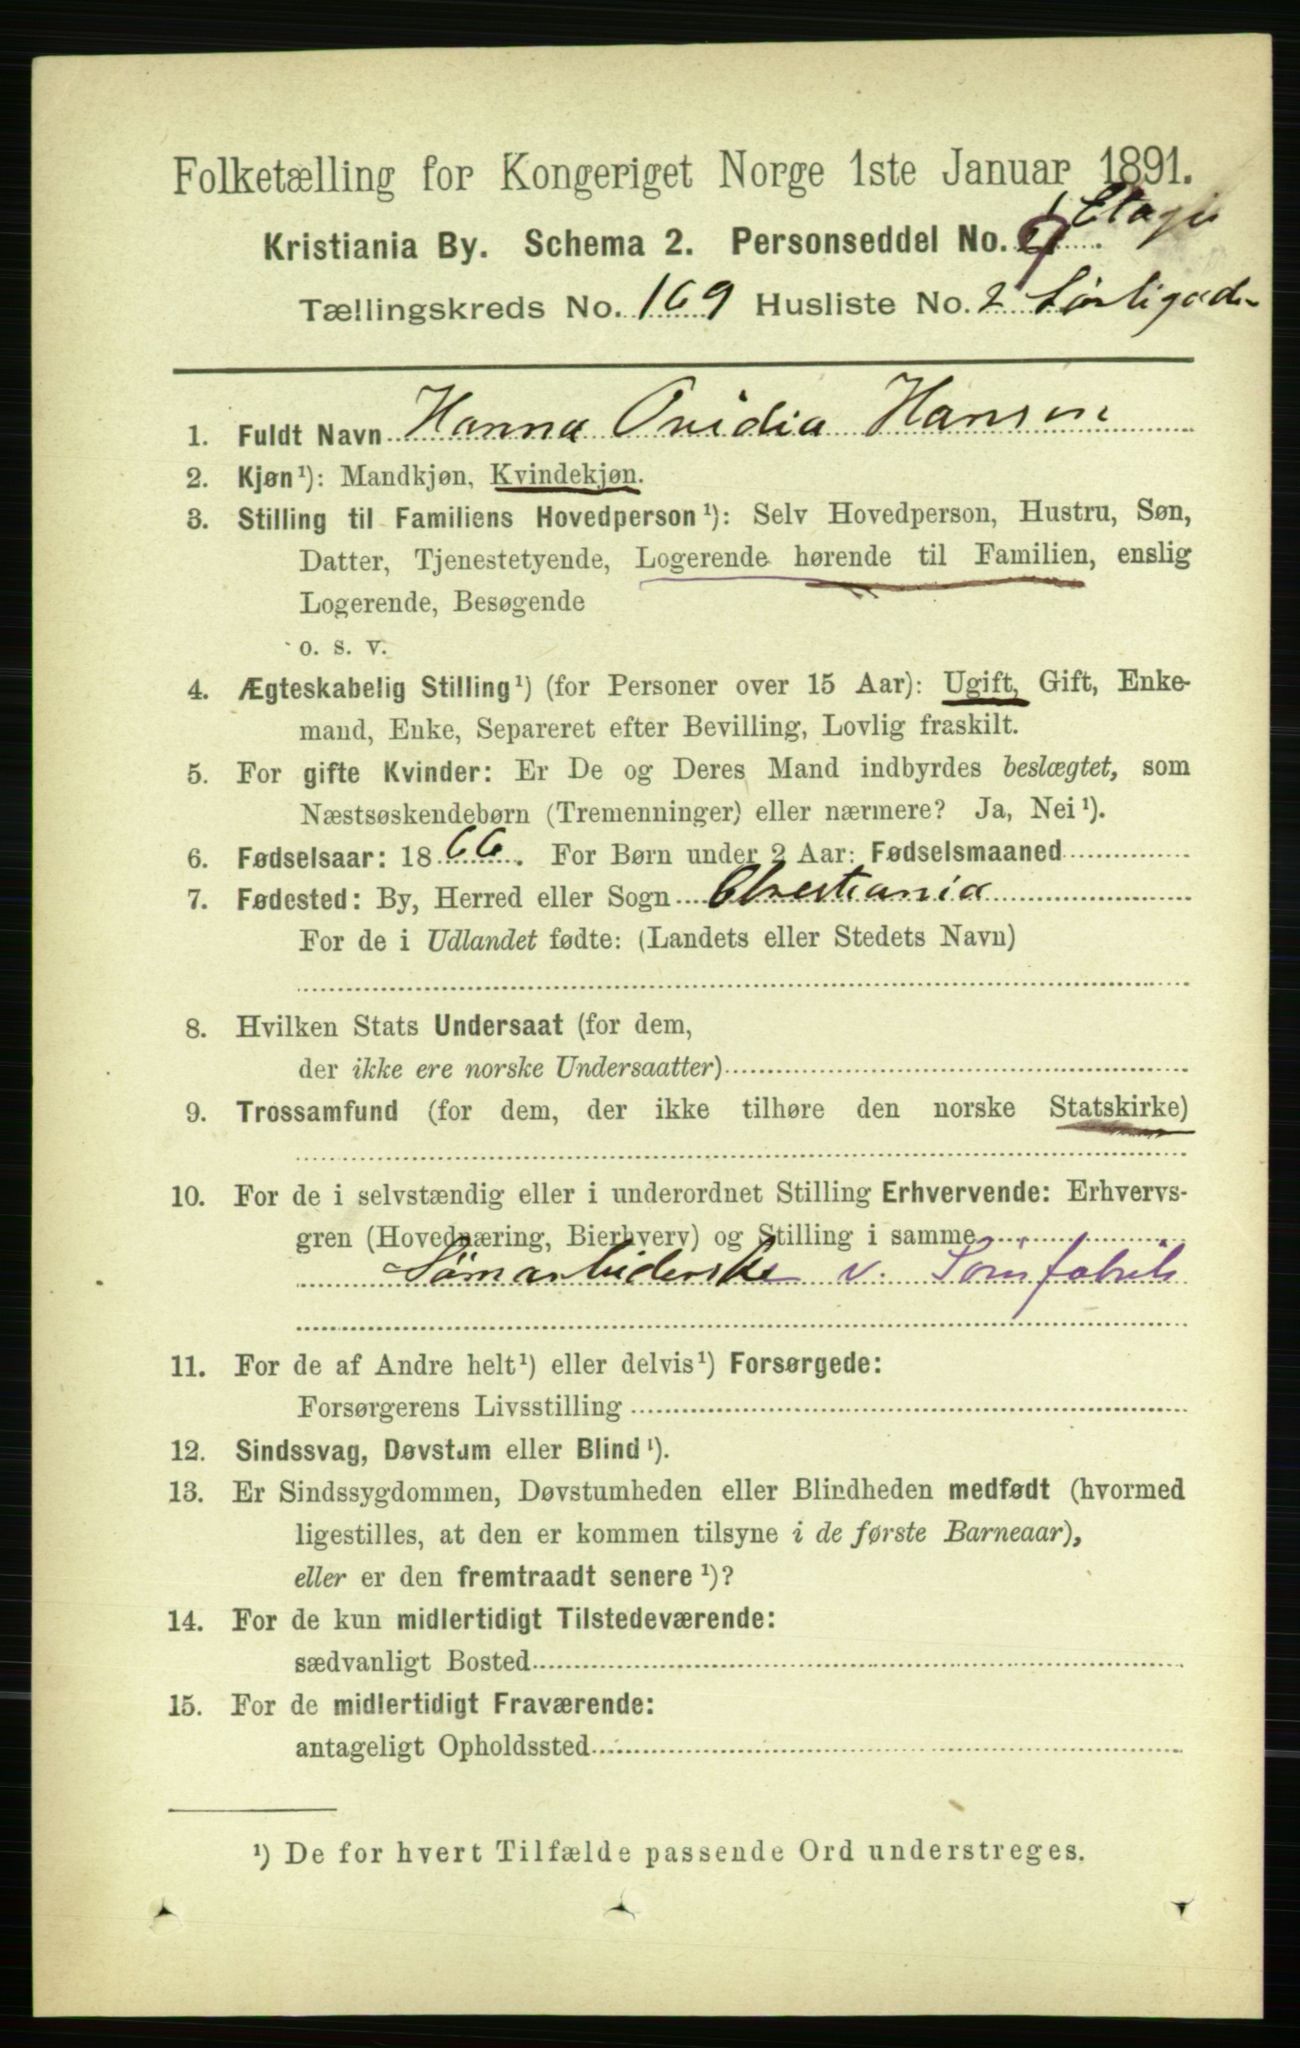 Folketælling for Kongeriget Norge 1ste Januar 1891.
Kristiania By. Schema 2. Personseddel No. 9 Etage
Tællingskreds No. 169 Husliste No. 2 Sørligaden
1. Fuldt Navn Hanna Ovidia Hansen
2. Kjøn¹): Mandkjøn, Kvindekjøn.
3. Stilling til Familiens Hovedperson¹): Selv Hovedperson, Hustru, Søn,
Datter, Tjenestetyende, Logerende hørende til Familien, enslig
Logerende, Besøgende
o. s. v.
4. Ægteskabelig Stilling¹) (for Personer over 15 Aar): Ugift, Gift, Enke-
mand, Enke, Separeret efter Bevilling, Lovlig fraskilt.
5. For gifte Kvinder: Er De og Deres Mand indbyrdes beslægtet, som
Næstsøskendebørn (Tremenninger) eller nærmere? Ja, Nei¹).
6. Fødselsaar: 1866. For Børn under 2 Aar: Fødselsmaaned
7. Fødested: By, Herred eller Sogn Christiania
For de i Udlandet fødte: (Landets eller Stedets Navn)
8. Hvilken Stats Undersaat (for dem,
der ikke ere norske Undersaatter)
9. Trossamfund (for dem, der ikke tilhøre den norske Statskirke)
10. For de i selvstændig eller i underordnet Stilling Erhvervende: Erhvervs-
gren (Hovednæring, Bierhverv) og Stilling i samme
Sömarbiderske v. Sömfabrik
11. For de af Andre helt¹) eller delvis¹) Forsørgede:
Forsørgerens Livsstilling
12. Sindssvag, Døvstum eller Blind¹).
13. Er Sindssygdommen, Døvstumheden eller Blindheden medfødt (hvormed
ligestilles, at den er kommen tilsyne i de første Barneaar),
eller er den fremtraadt senere¹)?
14. For de kun midlertidigt Tilstedeværende:
sædvanligt Bosted
15. For de midlertidigt Fraværende:
antageligt Opholdssted
¹) De for hvert Tilfælde passende Ord understreges.